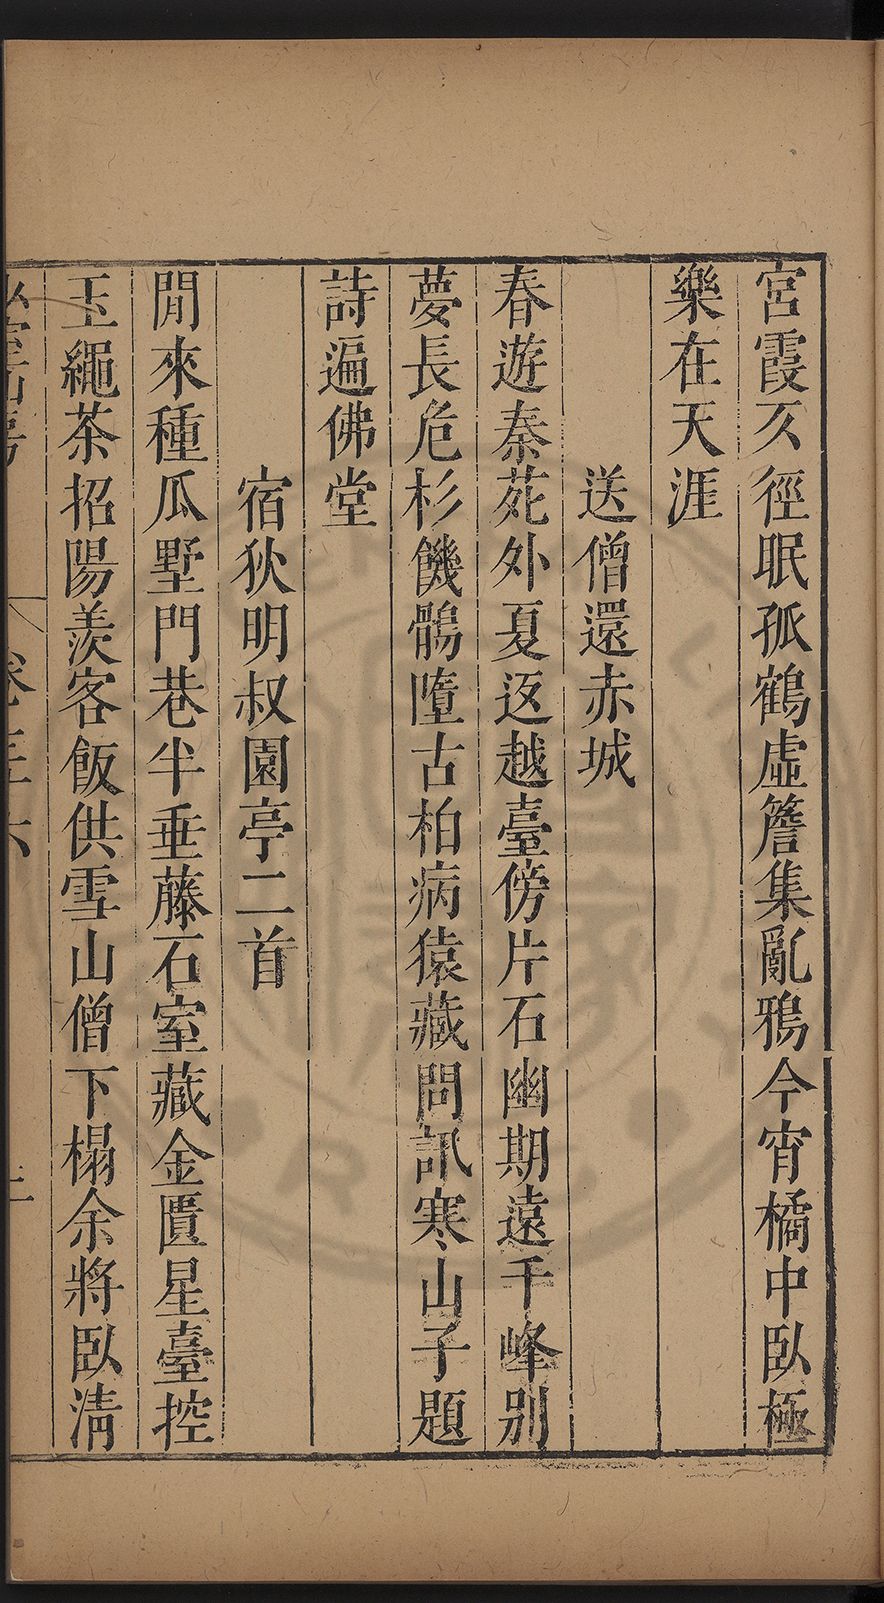 宮霞乆徑眠孤鶴虛簷集亂鴉今宵橘中臥極
樂在天涯
送僧還赤城
春遊秦苑外夏返越臺傍片石幽期遠千峰別
夢長危杉饑鶻墮古柏病猿藏問訊寒山子題
詩遍佛堂
宿狄明叔園亭二首
閒來種瓜墅門巷半垂藤石室藏金匱星臺控
玉繩茶招陽羨客飯供雪山僧下榻余將臥清